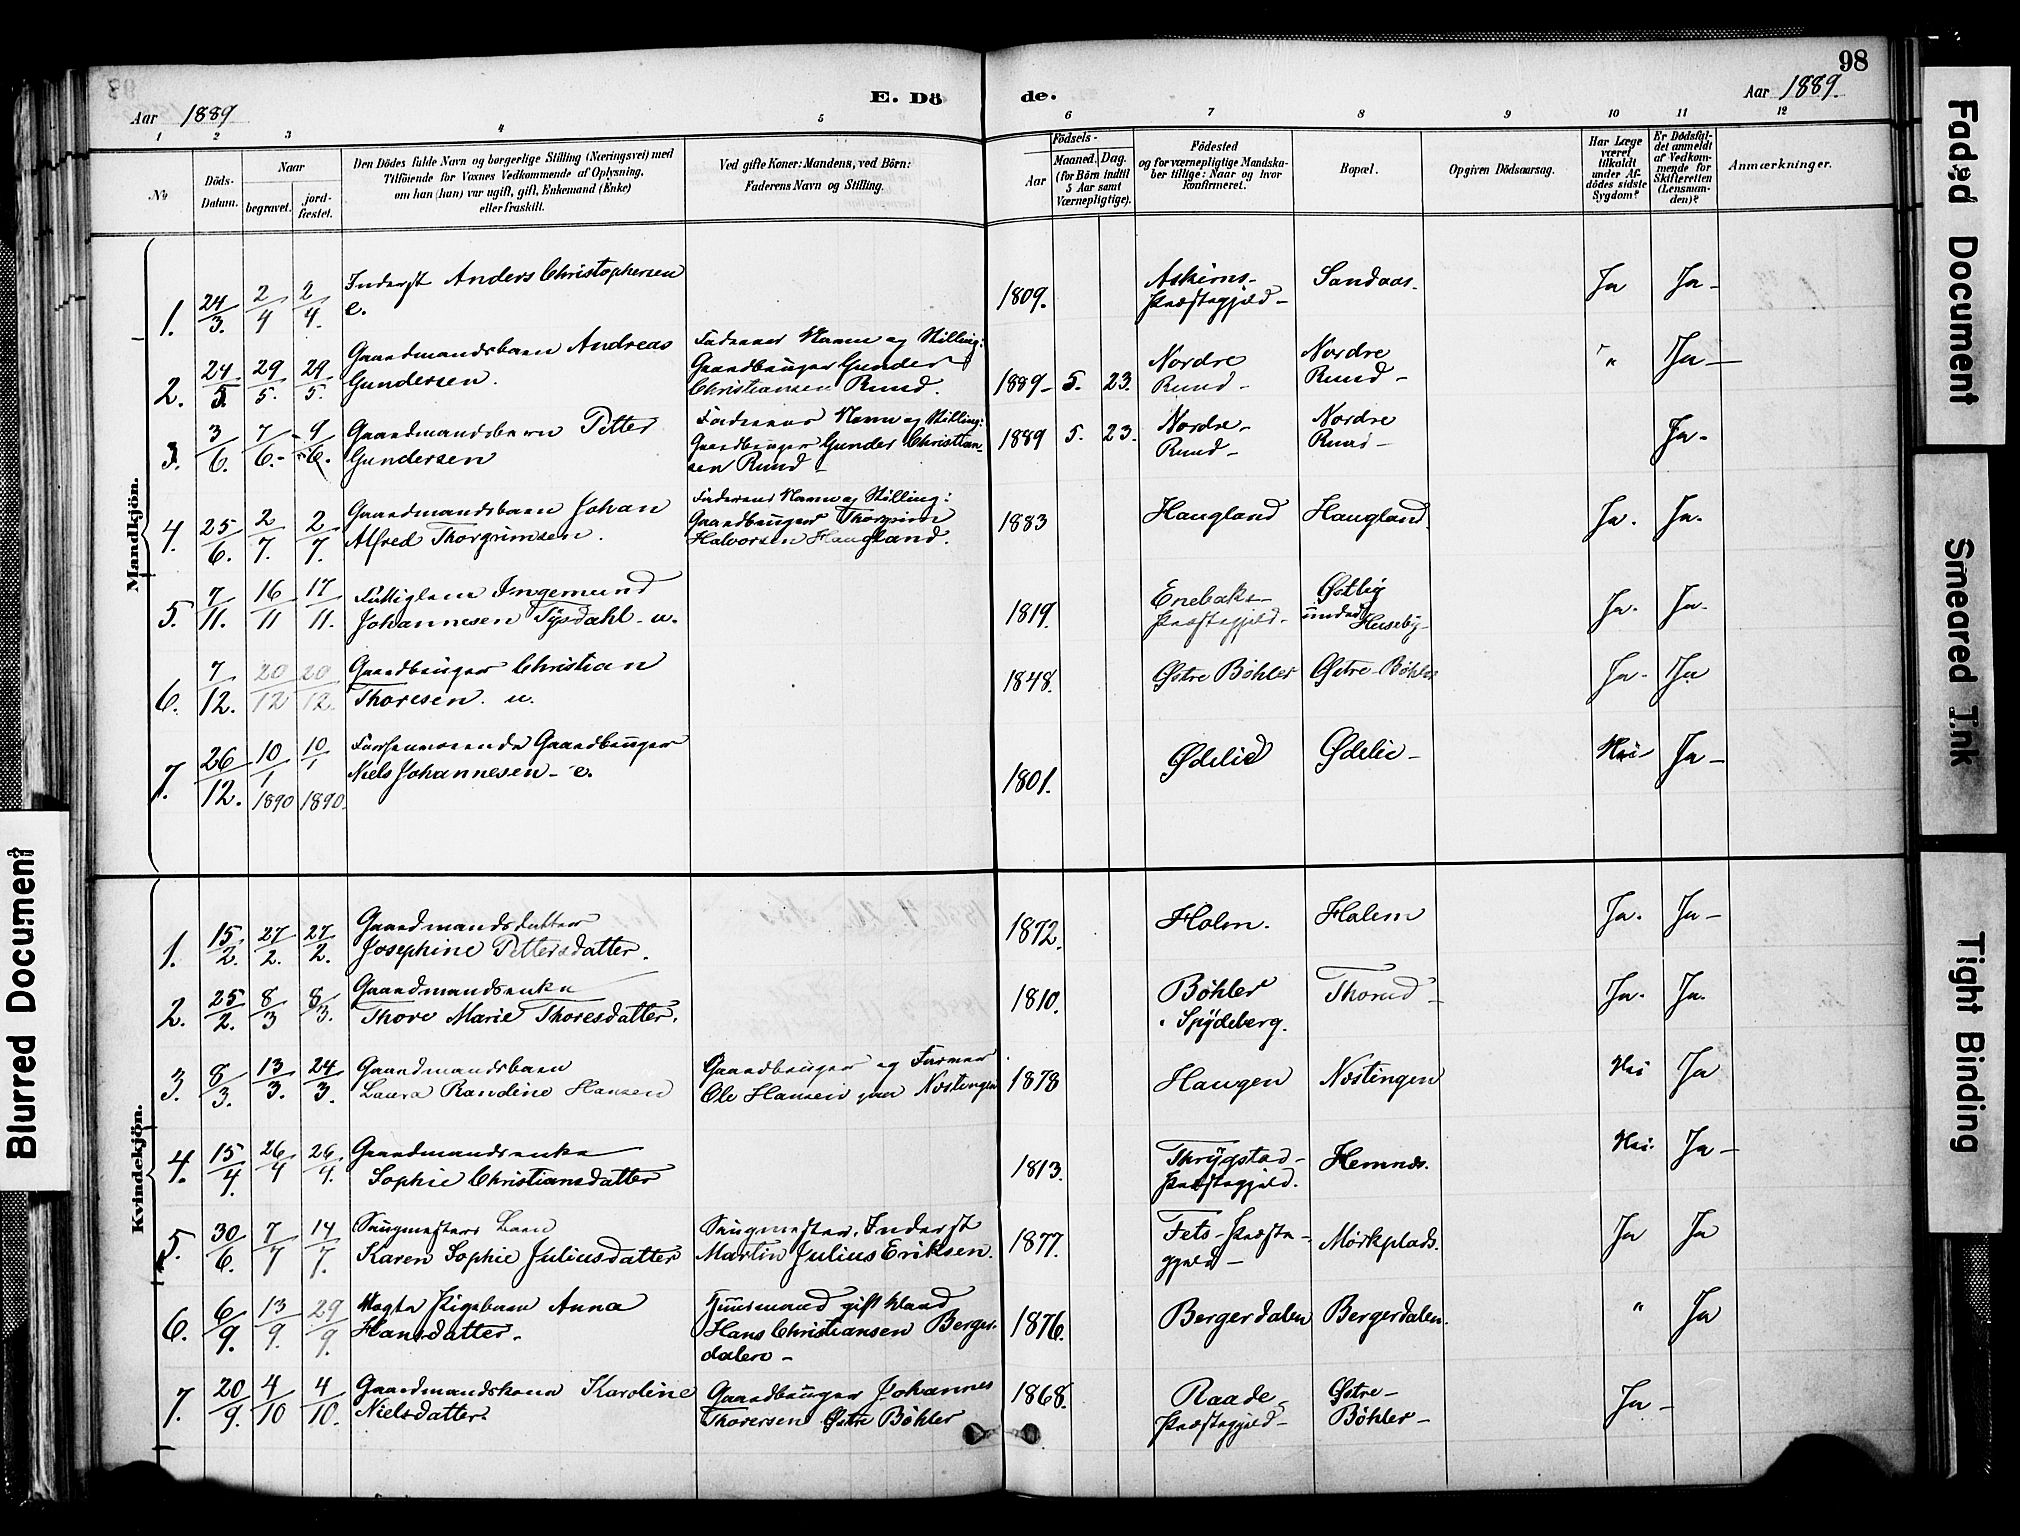 98
Aar 1889
E. Dö
de.
Aar 1889.
1 2 3 4 5 6 7 8 9 10 11 12
No
Döds-
Datum.
Naar
begravet.
jord-
fæstet.
Den Dödes fulde Navn og borgerlige Stilling (Næringsvei) med
Tilföiende for Voxnes Vedkommende af Oplysning,
om han (hun) var ugift, gift, Enkemand (Enke)
eller fraskilt.
Ved gifte Koner: Mandens, ved Börn:
Faderens Navn og Stilling.
Födsels-
Aar
Maaned. Dag.
(for Börn indtil
5 Aar samt
Værnepligtige).
Födested
og for værnepligtige Mandska-
ber tillige: Naar og hvor
konfirmeret.
Bopæl.
Opgiven Dödsaarsag.
Har Læge
været
tilkaldt
under Af-
dödes sidste
Sygdom?
Er Dödsfal-
det anmeldt
af Vedkom-
mende for
Skifteretten
(Lensman-
den)?
Anmærkninger.
Mandkjön.
1. 24/3. 2/4 2/4. Inderst Anders Christophersen
e.
1809. Askims-
Præstegjeld- Sandaas. Ja Ja-
2. 24/5. 29/5. 29/5. Gaardmandsbarn Andreas
Gundersen.
Faderens Navn og Stilling:
Gaardbruger Gunder
Christiansen Ruud.
1889- 5. 23. Nordre
Ruud- Nordre
Ruud- " Ja-
3. 3/6. 7/6.- 9/6. Gaardmandsbarn Petter
Gundersen
Faderens Navn og Stilling:
Gaardbruger Gunder Christian-
sen Ruud-
1889 5. 23. Nordre-
Ruud- Nordre
Ruud- Ja-
4. 25/6. 2/7. 2/7. Gaardmandsbarn Johan
Alfred Thorgrimsen.
Faderens Navn og Stilling:
Gaardbruger Thorgrim
Halvorsen Haugland.
1883 Haugland Haugland. Ja. Ja.
5. 7/11. 16/11 17/11. Fattiglem Ingemund
Johannesen Tysdahl- u.
1819. Enebaks-
Præstegjeld- Østby
under
Huseby- Ja. Ja.
6. 7/12. 20/12 20/12. Gaardbruger Christian
Thoresen. u.
1848. Østre Böhler Østre-Böhler Ja- Ja
7. 26/12. 10/1 1890 10/1 1890. Forhenværende Gaardbruger
Niels Johannesen- e.
1801. Ødelie Ødelie- Nei- Ja-
Kvindekjön.
1. 15/2. 27/2. 27/2. Gaardmandsdatter
Josephine Pettersdatter.
1872. Holm. Holm Ja. Ja-
2. 25/2. 8/3 8/3. Gaardmandsenke
Thore Marie Thoresdatter.
1810. Böhler
Spydeberg. Thorud- Ja. Ja.
3. 8/3. 13/3. 24/3. Gaardmandsbarn
Laura Randine Hansen
Gaardbruger og Farmer
Ole Hansen paa Næstingen
1878 Haugen Næstingen Nei Ja
4. 15/4. 26/4 26/4. Gaardmandsenke
Sophie Christiansdatter
1813. Thrygstad-
Præstegjeld. Hemnæs. Nei. Ja-
5. 30/6. 7/7 14/7. Saugmesters Barn
Karen Sophie Juliusdatter
Saugmester, Inderst
Martin Julius Eriksen.
1877. Fets-Præste-
gjeld- Mörkplads. Ja Ja
6. 6/9. 13/9 29/9. Ægte Pigebarn Anna
Hansdatter.
Huusmand gift Mand
Hans Christiansen Berger-
dalen-
1876. Bergerdalen Bergerdalen. " Ja
7. 20/9. 4/10 4/10. Gaardmandskone Karoline
Nielsdatter.
Gaardbruger Johannes
Thoresen Østre Böhler
1868. Raade
Præstegjeld- Østre-
Böhler- Ja-
Blurred Document
Faded Document
Smeared Ink
Tight Binding